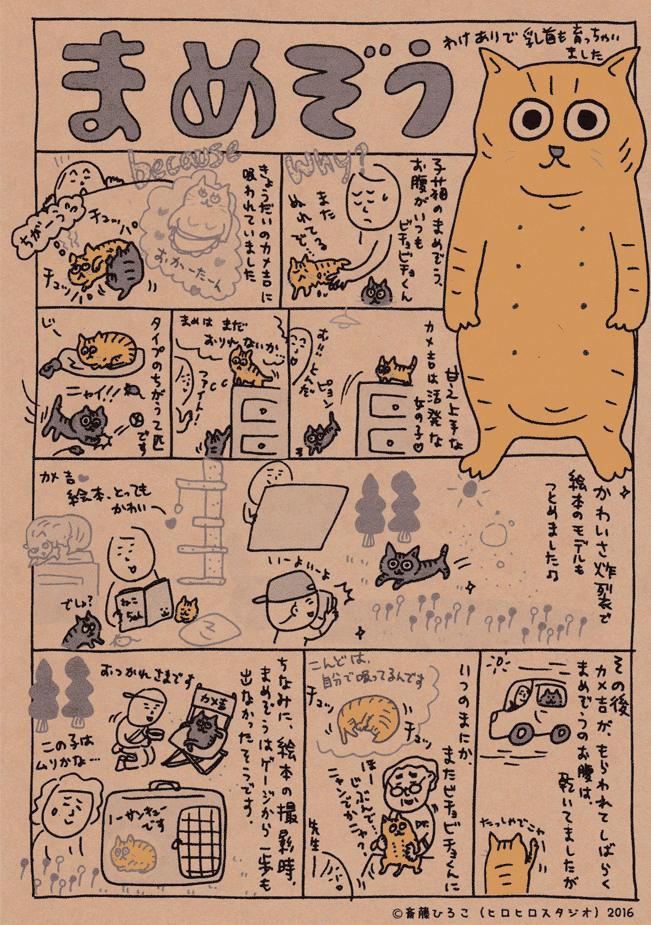 まめぞう
わけありで乳首も育っちゃい
ました
子猫のまめぞう、
お腹がいつも
ビチョビチョくん
また
ぬれてる
で…
WHY?
because
きょうだいのカメ吉に
吸われていました
おかーたーん
ちがーうっ
チュッパ
チュッパ
甘え上手な
カメ吉は活発な
女の子♡
む!!
とんだ
ピョン
まめはまだ
おりれないか…
ファイト!
タイプのちがう2匹
です
じー
ニャイ!!
かわいさ炸裂で
絵本のモデルも
つとめました♫
いーよいーよ
カメ吉
絵本、とっても
かわいー
ねこ
ちゃん
でしょ?
ちなみに、絵本の撮影時、
まめぞうはゲージから一歩も
出なかったそうです。
おつかれさまです
カメ吉
この子は
ムリかな…
ノーサンキュー
です
いつのまにか、
またビチョビチョくんに
こんどは、
自分で吸ってるんです
チュッ
チュッ
ほー
じぶんで…
ニャンでかニャ?
DR.
先生ー
その後
カメ吉が、もらわれてしばらく
まめぞうのお腹は、
乾いてましたが
たっしゃでニャ
©斎藤ひろこ(ヒロヒロスタジオ)2016